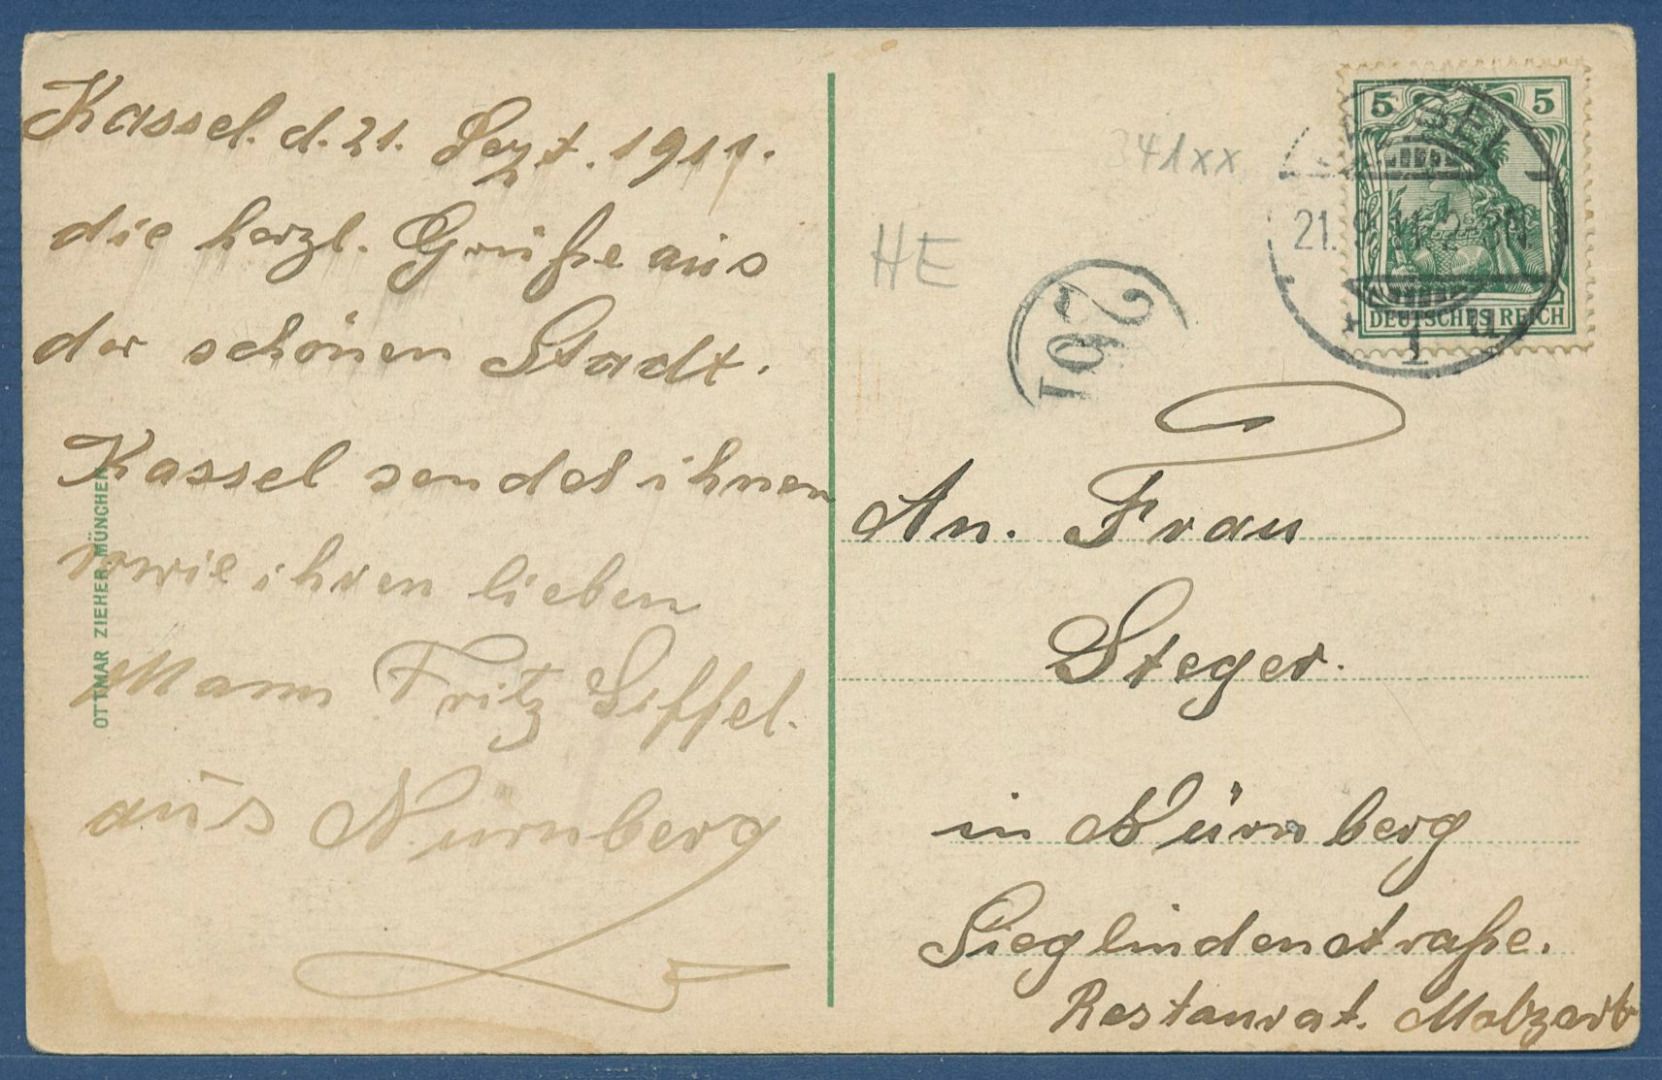 Kassel. d. 21. Sept. 1911.
die herzl. Grüße aus
der schönen Stadt.
Kassel sendet ihnen
sowie ihren lieben
Mann Fritz Siffel.
aus Nürnberg
OTTMAR ZIEHER MÜNCHEN
341xx
HE
5 5
DEUTSCHES REICH
21.9.11.2-3N
1
261
An. Frau
Steger.
in Nürnberg
Sieglindenstraße.
Restaurat.